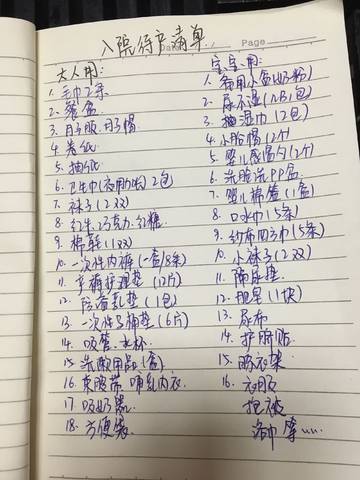 入院待产清单
Date
Page
大人用:
1. 毛巾2条
2. 餐盒
3. 月子服.月子帽
4. 卷纸
5. 抽纸
6. 卫生巾(夜用/日用)2包
7. 袜子(2双)
8. 红牛.巧克力.红糖
9. 棉鞋(1双)
10. 一次性内裤(一盒/8条)
11. 产褥护理垫(12片)
12. 防溢乳垫(1包)
13. 一次性马桶垫(6片)
14. 吸管.水杯
15. 洗漱用品(套)
16. 束腹带 哺乳内衣
17. 吸奶器
18. 方便袋
宝宝用:
1. 备用小盒奶粉
2. 尿不湿(NB1包)
3. 抽湿巾(2包)
4. 小胎帽(2个)
5. 婴儿感温勺(2个)
6. 洗脸洗PP盆
7. 婴儿棉签(1盒)
8. 口水巾(5条)
9. 纱布四方巾(5条)
10. 小袜子(2双)
11. 隔尿垫
12. 肥皂(1块)
13. 尿布
14. 护脐贴
15. 晾衣架
16. 衣服
抱被
浴巾 等……